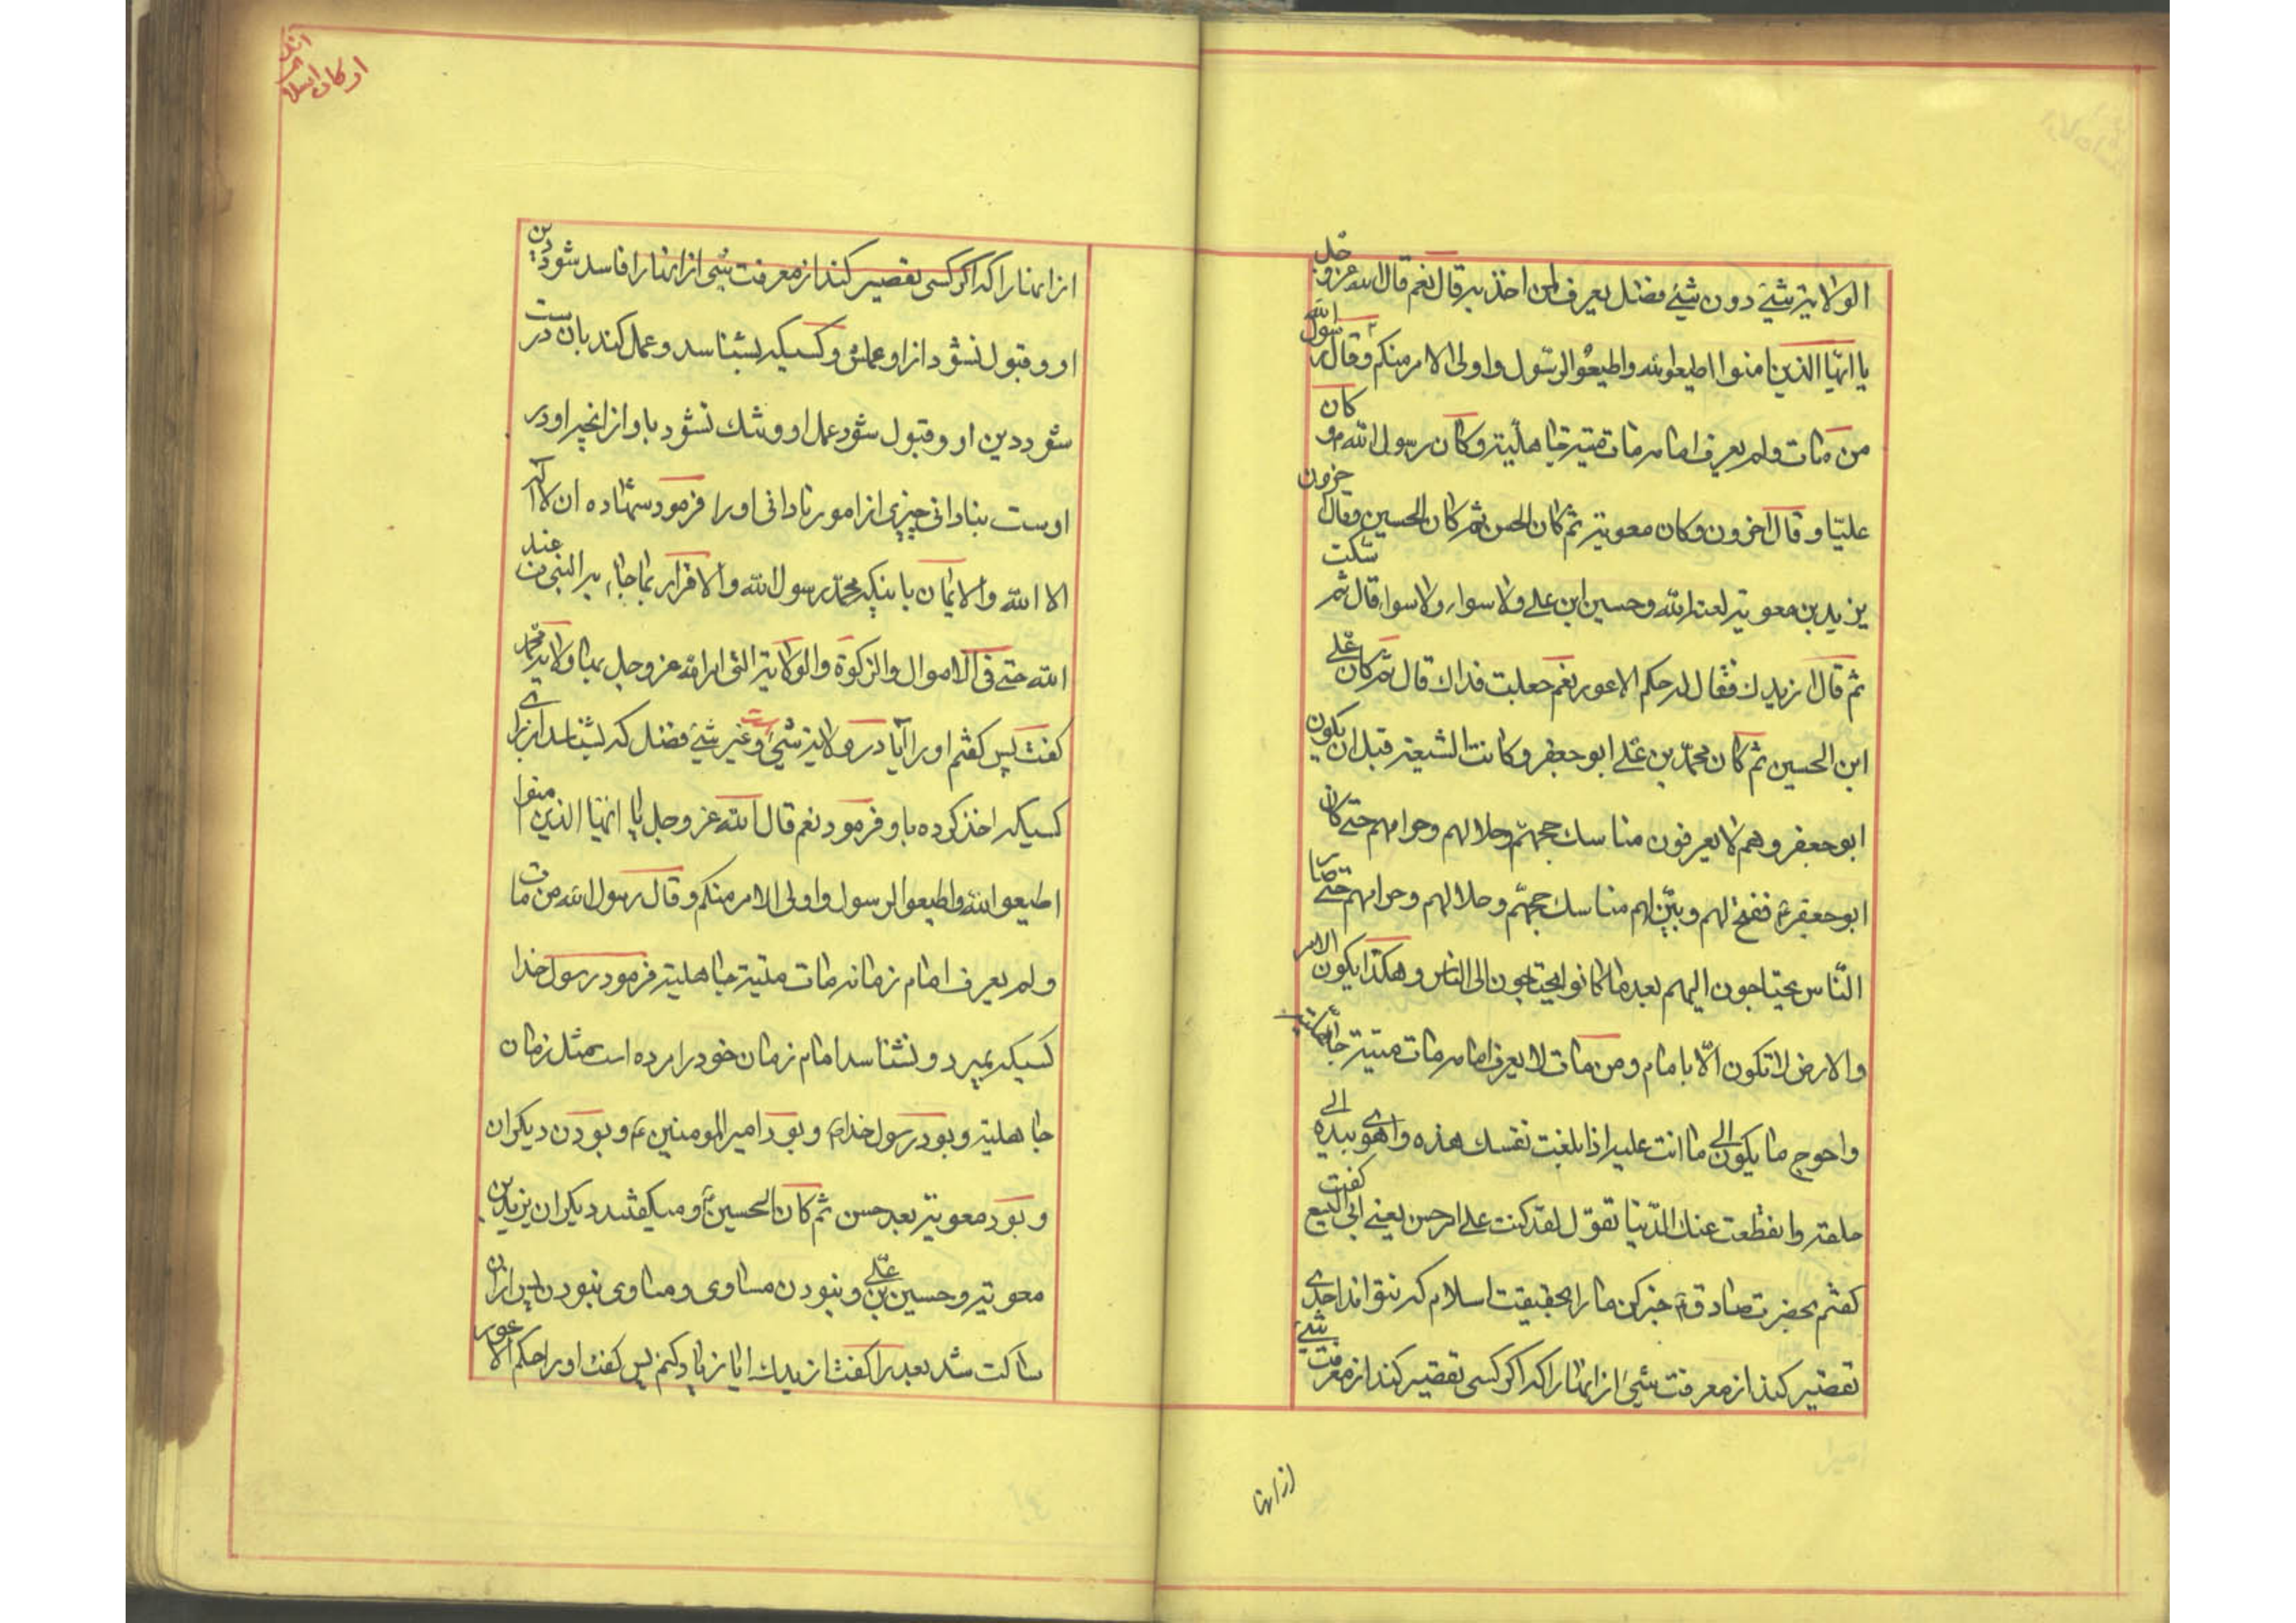 الولایة شیئ دون شیئ فضل یعرف لمن اخذ به قال نعم قال الله عز و جل
یا ایها الذین امنوا اطیعوا الله و اطیعوا الرسول و اولی الامر منکم و قال رسول الله
من مات ولم یعرف امامه مات میتة جاهلیة و کان رسول الله ص و کان
علیا و قال اخرون و کان معویة ثم کان الحسن ثم کان الحسین و قال اخرون
یزید بن معویة لعنه الله و حسین ابن علی ولا سواء ولا سواء قال ثم سکت
ثم قال ازیدك فقال له حکم الاعور نعم جعلت فداك قال ثم کان علی
ابن الحسین ثم کان محمد بن علی ابو جعفر و کانت الشیعة قبل ان یکون
ابو جعفر و هم لا یعرفون مناسك حجهم و حلالهم و حرامهم حتی کان
ابو جعفر ع ففتح لهم و بین لهم مناسك حجهم و حلالهم و حرامهم حتی صار
الناس یحتاجون الیهم بعد ما کانوا یحتاجون الی الناس و هکذا یکون الامر
والارض لا تکون الا بامام و من مات لا یعرف امامه مات میتة جاهلیة
و احوج ما یکون الی ما انت علیه اذا بلغت نفسك هذه و اهوی بیده الی
حلقه وانقطعت عنك الدنیا تقول لقد کنت علی امر حسن یعنی ابی الیسع گفت
گفتم بحضرت صادق ع خبر کن مارا بحقیقت اسلام که نتواند احدی
تقصیر کند از معرفت شیئ از اینها را که اگر کسی تقصیر کند از معرفت شیئ
از اینها
ارکان اسلام
از اینها را که اگر کسی تقصیر کند از معرفت شیئ از اینها را فاسد شود دین
او و قبول نشود از او عملش و کسیکه بشناسد و عمل کند بان درست
شود دین او و قبول شود عمل او و شك نشود باو از انچه او در
اوست بنادانی چیزی از امور نادانی او را فرمود شهاده ان لا اله
الا الله والایمان باینکه محمد رسول الله والاقرار بما جاء به النبی من عند
الله حتی فی الاموال والزکوة والولایة التی امر الله عز و جل بها ولایة محمد
گفت پس گفتم او را آیا در ولایة شیئ است و غیر شیئ فضل که بشناسد انرا
کسیکه اخذ کرده باو فرمود نعم قال الله عز و جل یا ایها الذین امنوا
اطیعوا الله واطیعوا الرسول و اولی الامر منکم و قال رسول الله من مات
ولم یعرف امام زمانه مات میتة جاهلیة فرمود رسول خدا
کسیکه بمیرد و نشناسد امام زمان خود را مرده است مثل زمان
جاهلیة و بود رسول خدا ص و بود امیر المومنین ع و بودن دیکران
و بود معویة بعد حسن ثم کان الحسین ع و میکفتند دیکران یزید بن
معویة و حسین بن علی و نبودن مساوی و مساوی نبودن پس ازان
ساکت شد بعد را کفت ازیدك ایا زیاد کنم پس کفت او را حکم الاعور